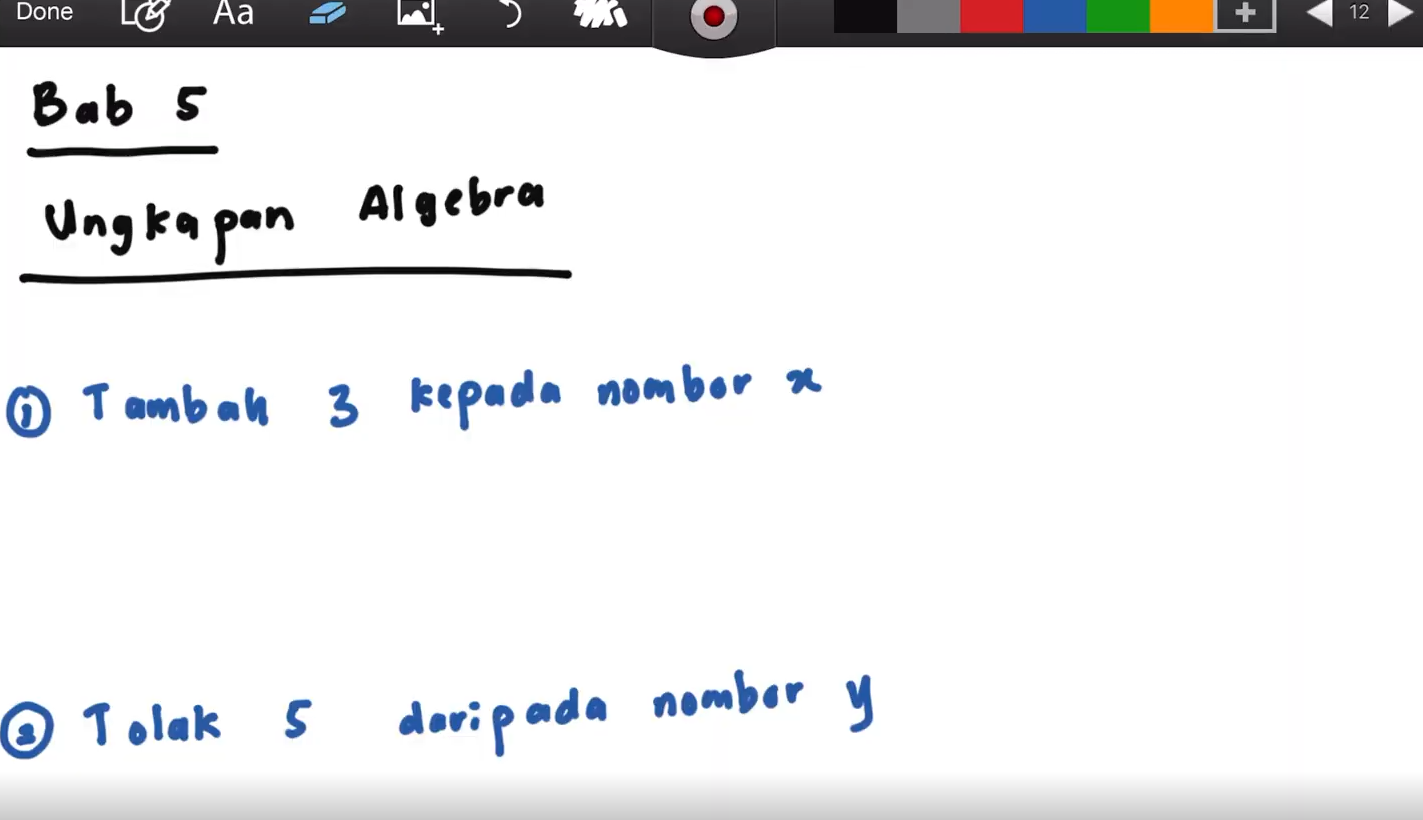 Done Aa 12
Bab 5
Ungkapan Algebra
① Tambah 3 kepada nombor x
② Tolak 5 daripada nombor y